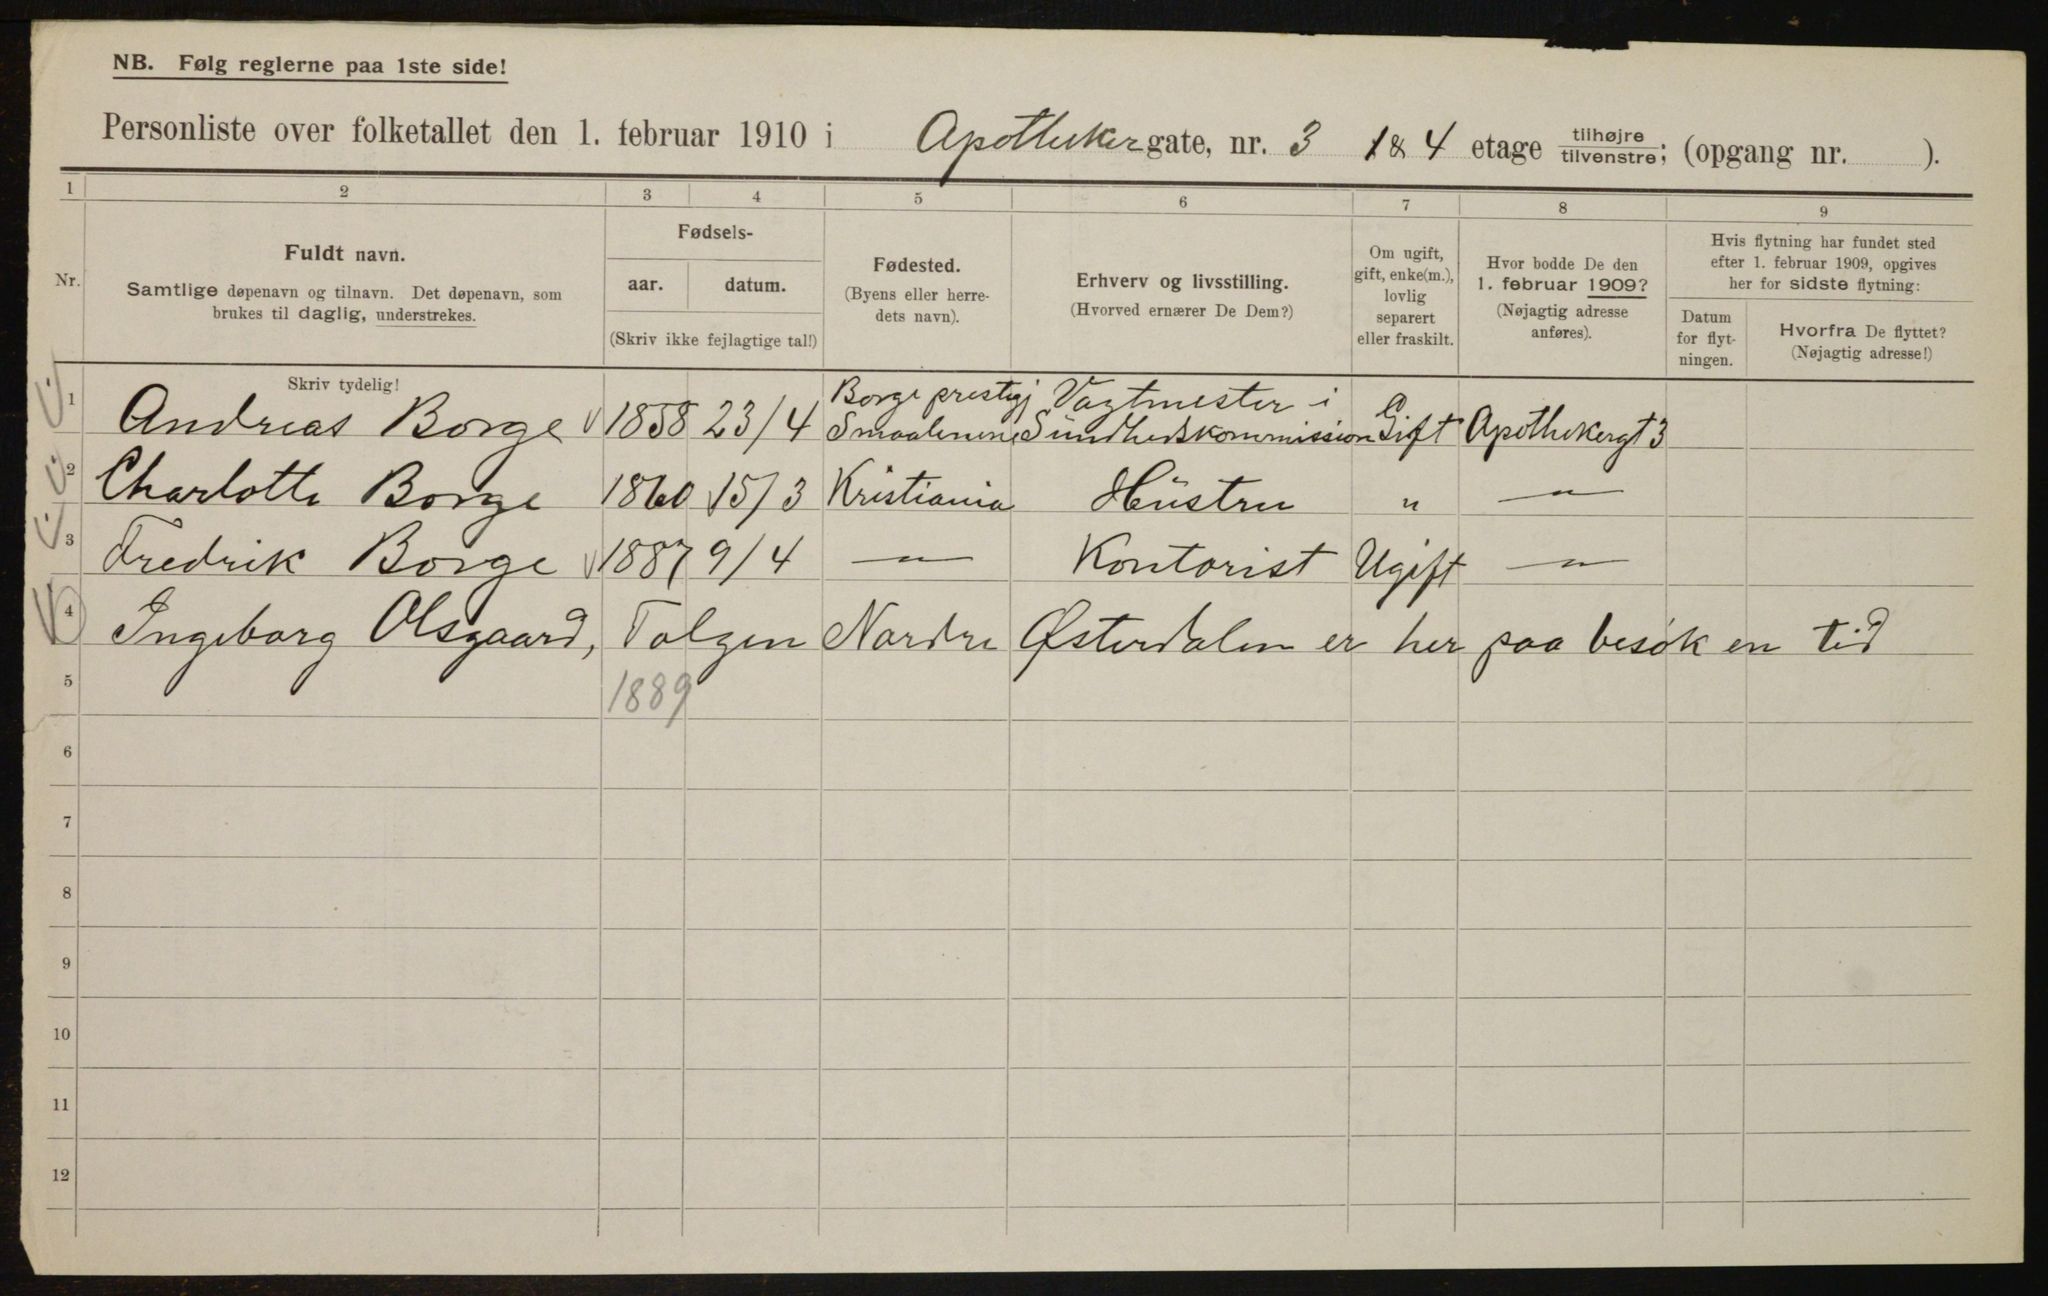 NB. Følg reglerne paa 1ste side!
Personliste over folketallet den 1. februar 1910 i Apotheker gate, nr. 3 1 & 4 etage tilhøjre/tilvenstre; (opgang nr. ).
1 2 3 4 5 6 7 8 9
Nr.
Fuldt navn.
Samtlige døpenavn og tilnavn. Det døpenavn, som
brukes til daglig, understrekes.
Skriv tydelig!
Fødsels-
aar. datum.
(Skriv ikke fejlagtige tal!)
Fødested.
(Byens eller herre-
dets navn).
Erhverv og livsstilling.
(Hvorved ernærer De Dem?)
Om ugift,
gift, enke(m.),
lovlig
separert
eller fraskilt.
Hvor bodde De den
1. februar 1909?
(Nøjagtig adresse
anføres).
Hvis flytning har fundet sted
efter 1. februar 1909, opgives
her for sidste flytning:
Datum
for flyt-
ningen.
Hvorfra De flyttet?
(Nøjagtig adresse!)
1 Andreas Borge 1858 23/4 Borge prestgj Smaalenene Vagtmester i Sundhedskommission Gift Apothekergt 3
2 Charlotte Borge 1860 15/3 Kristiania Hüstru " — " —
3 Fredrik Borge 1887 9/4 — " — Kontorist Ugift — " —
4 Ingeborg Olsgaard, Tolgen Nordre Østerdalen er her paa besøk en tid
5 1889
6
7
8
9
10
11
12